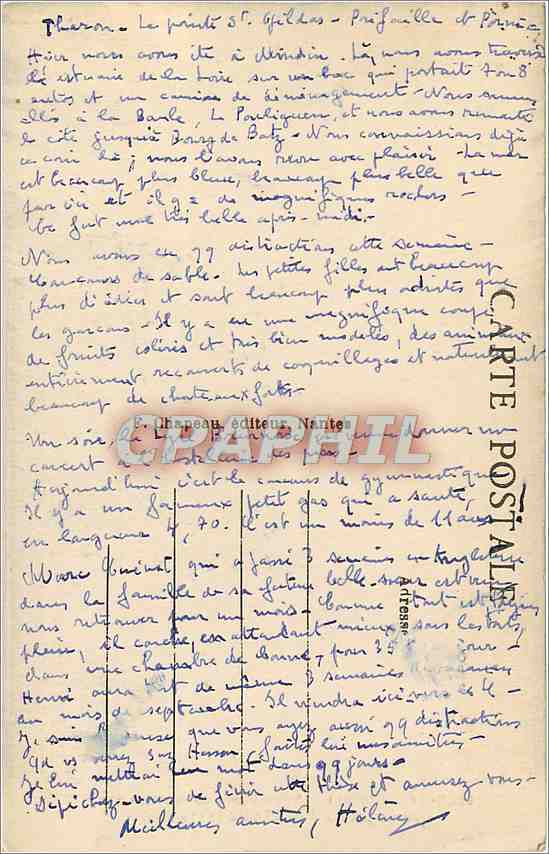 Tharon - La pointe St. Gildas - Préfaille et Pornic
Hier nous avons été à Mindin. Là, nous avons traversé
l'estuaire de la Loire sur un bac qui portait 7 ou 8
autos et un camion de déménagement - Nous sommes
allés à la Baule, Le Pouliguen, et nous avons remonté
la côte jusqu'à Bourg de Batz - Nous connaissions déjà
ce coin là ; nous l'avons revu avec plaisir - La mer
est beaucoup plus bleue, beaucoup plus belle que
par ici et il y a de magnifiques rochers -
fait une très belle après-midi. -
Nous avons eu qq distractions cette semaine -
Concours de sable - Les petites filles ont beaucoup
plus d'idées et sont beaucoup plus adroites que
les garçons - Il y a eu une magnifique coupe
de fruits colorés et très bien modelés, des animaux
entièrement recouverts de coquillages et naturellement
beaucoup de châteaux forts -
Un soir, la donner un
concert
Aujourd'hui c'est le concours de gymnastique
Il y a un fameux petit gas qui a sauté,
en longueur 4,70. C'est un moins de 11 ans
Marc qui a passé 3 semaines en Angleterre
dans la famille de sa future belle-sœur est venu
nous retrouver pour un mois - Comme tout est déjà
plein, il couche, en attendant mieux sous les toits,
dans une chambre de bonne, pour 35 jour -
Henri aura de même 3 semaines de vacances
au mois de septembre. Il viendra ici vers le 4 -
Je suis que vous ayez aussi qq distractions
Qd vs Hasson, faites lui mes amitiés -
Je lui mettrai un mot dans qq jours -
Dépêchez-vous de finir cette thèse et amusez-vous -
Meilleures amitiés, Hélène
CARTE POSTALE
Adresse
F. Chapeau, éditeur, Nantes
CPAPHIL